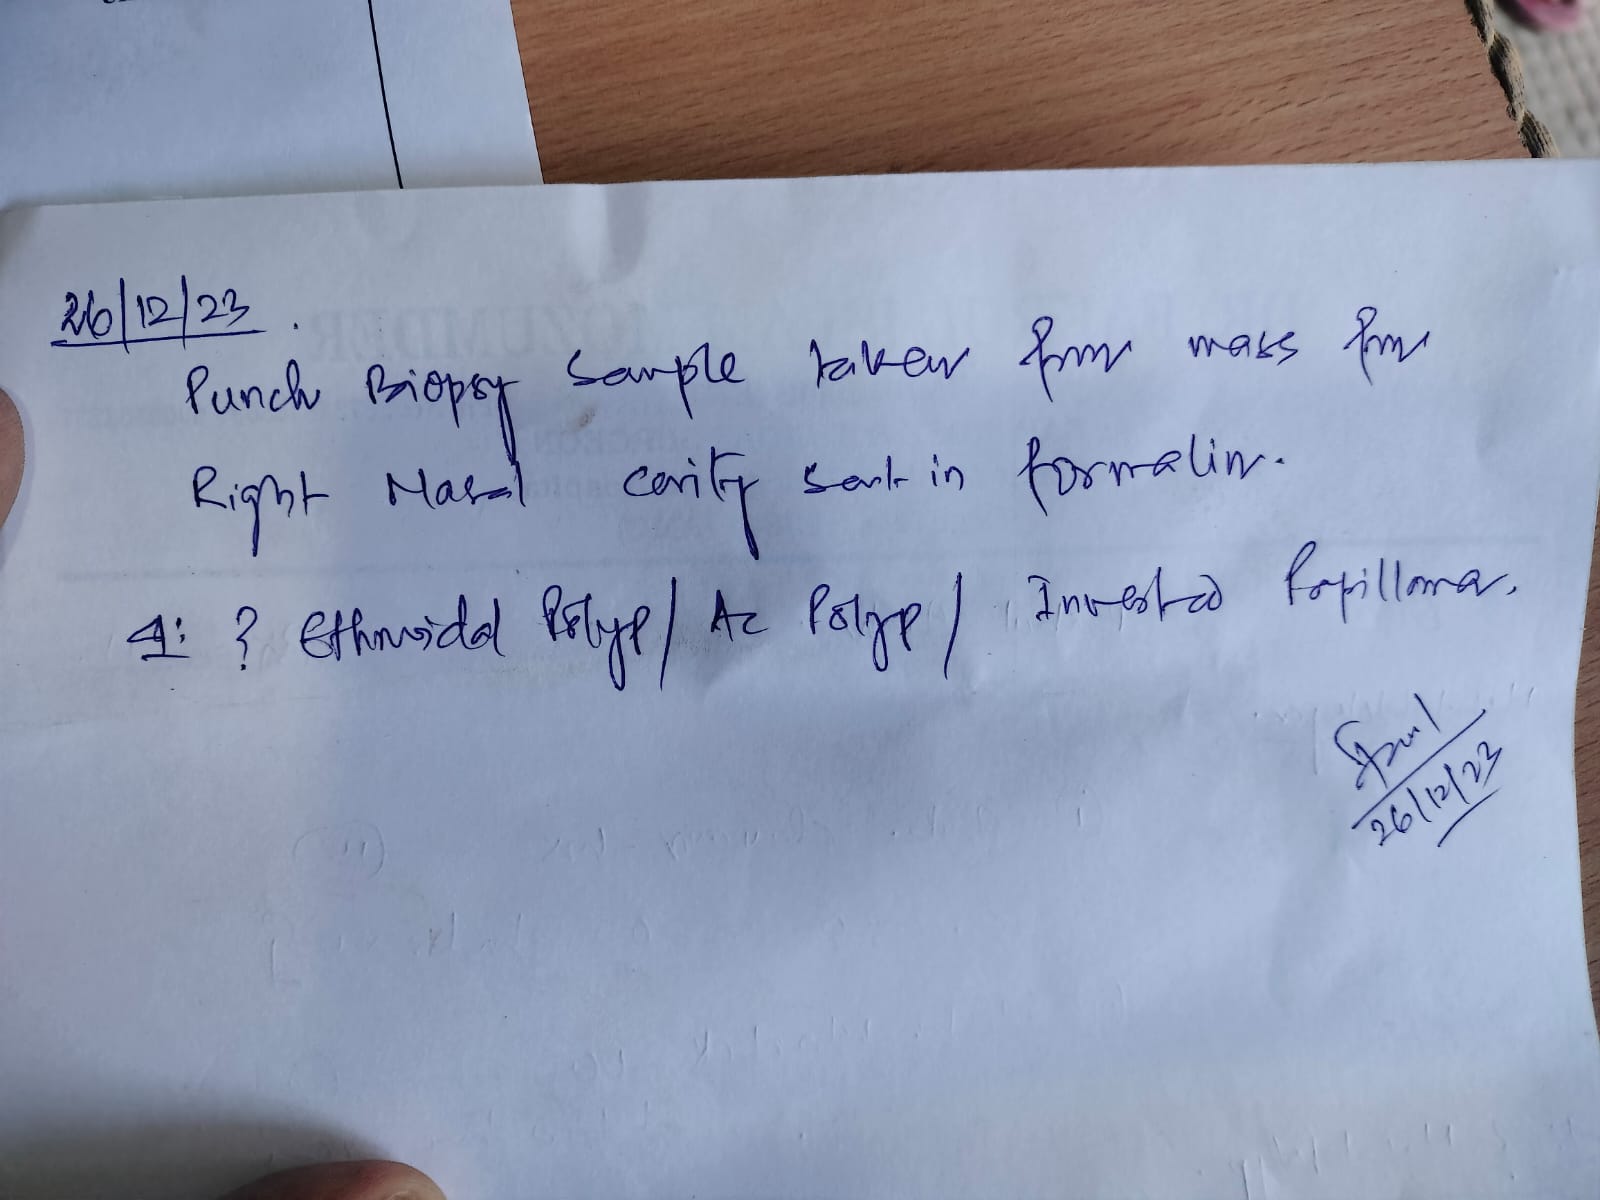 26/12/23.
Punch Biopsy Sample taken from mass from
Right Nasal cavity sent in formalin.
? Ethmoidal Polyp/ Ac Polyp/ Inverted Papilloma.
26/12/23